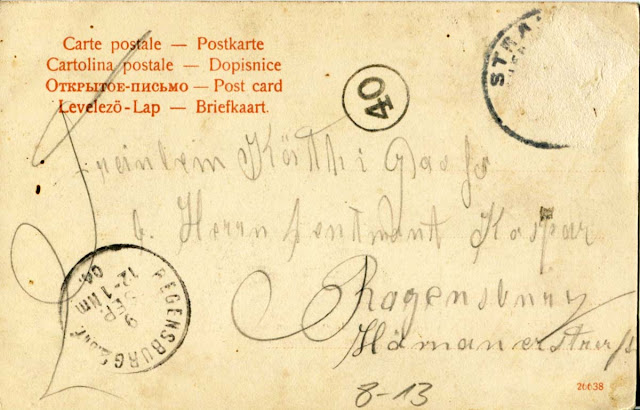 Carte postale — Postkarte
Cartolina postale — Dopisnice
Открытое-письмо — Post card
Levelező-Lap — Briefkaart.
STRA
40
Fräulein Käthi
b. Herrn Leutnant Kaspar
Ragensburg
REGENSBURG
9
SEP.
12-1 Nm
04.
8-13
26638